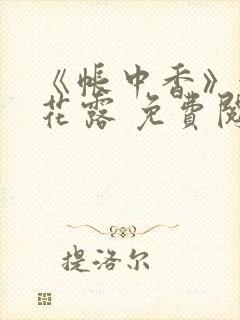 《帐中香》
花露 免費閱
提洛尔